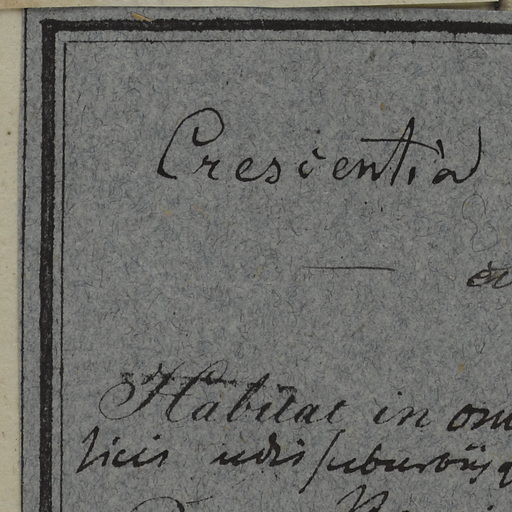 Crescentia
Habitat in
licis udis suburbiis